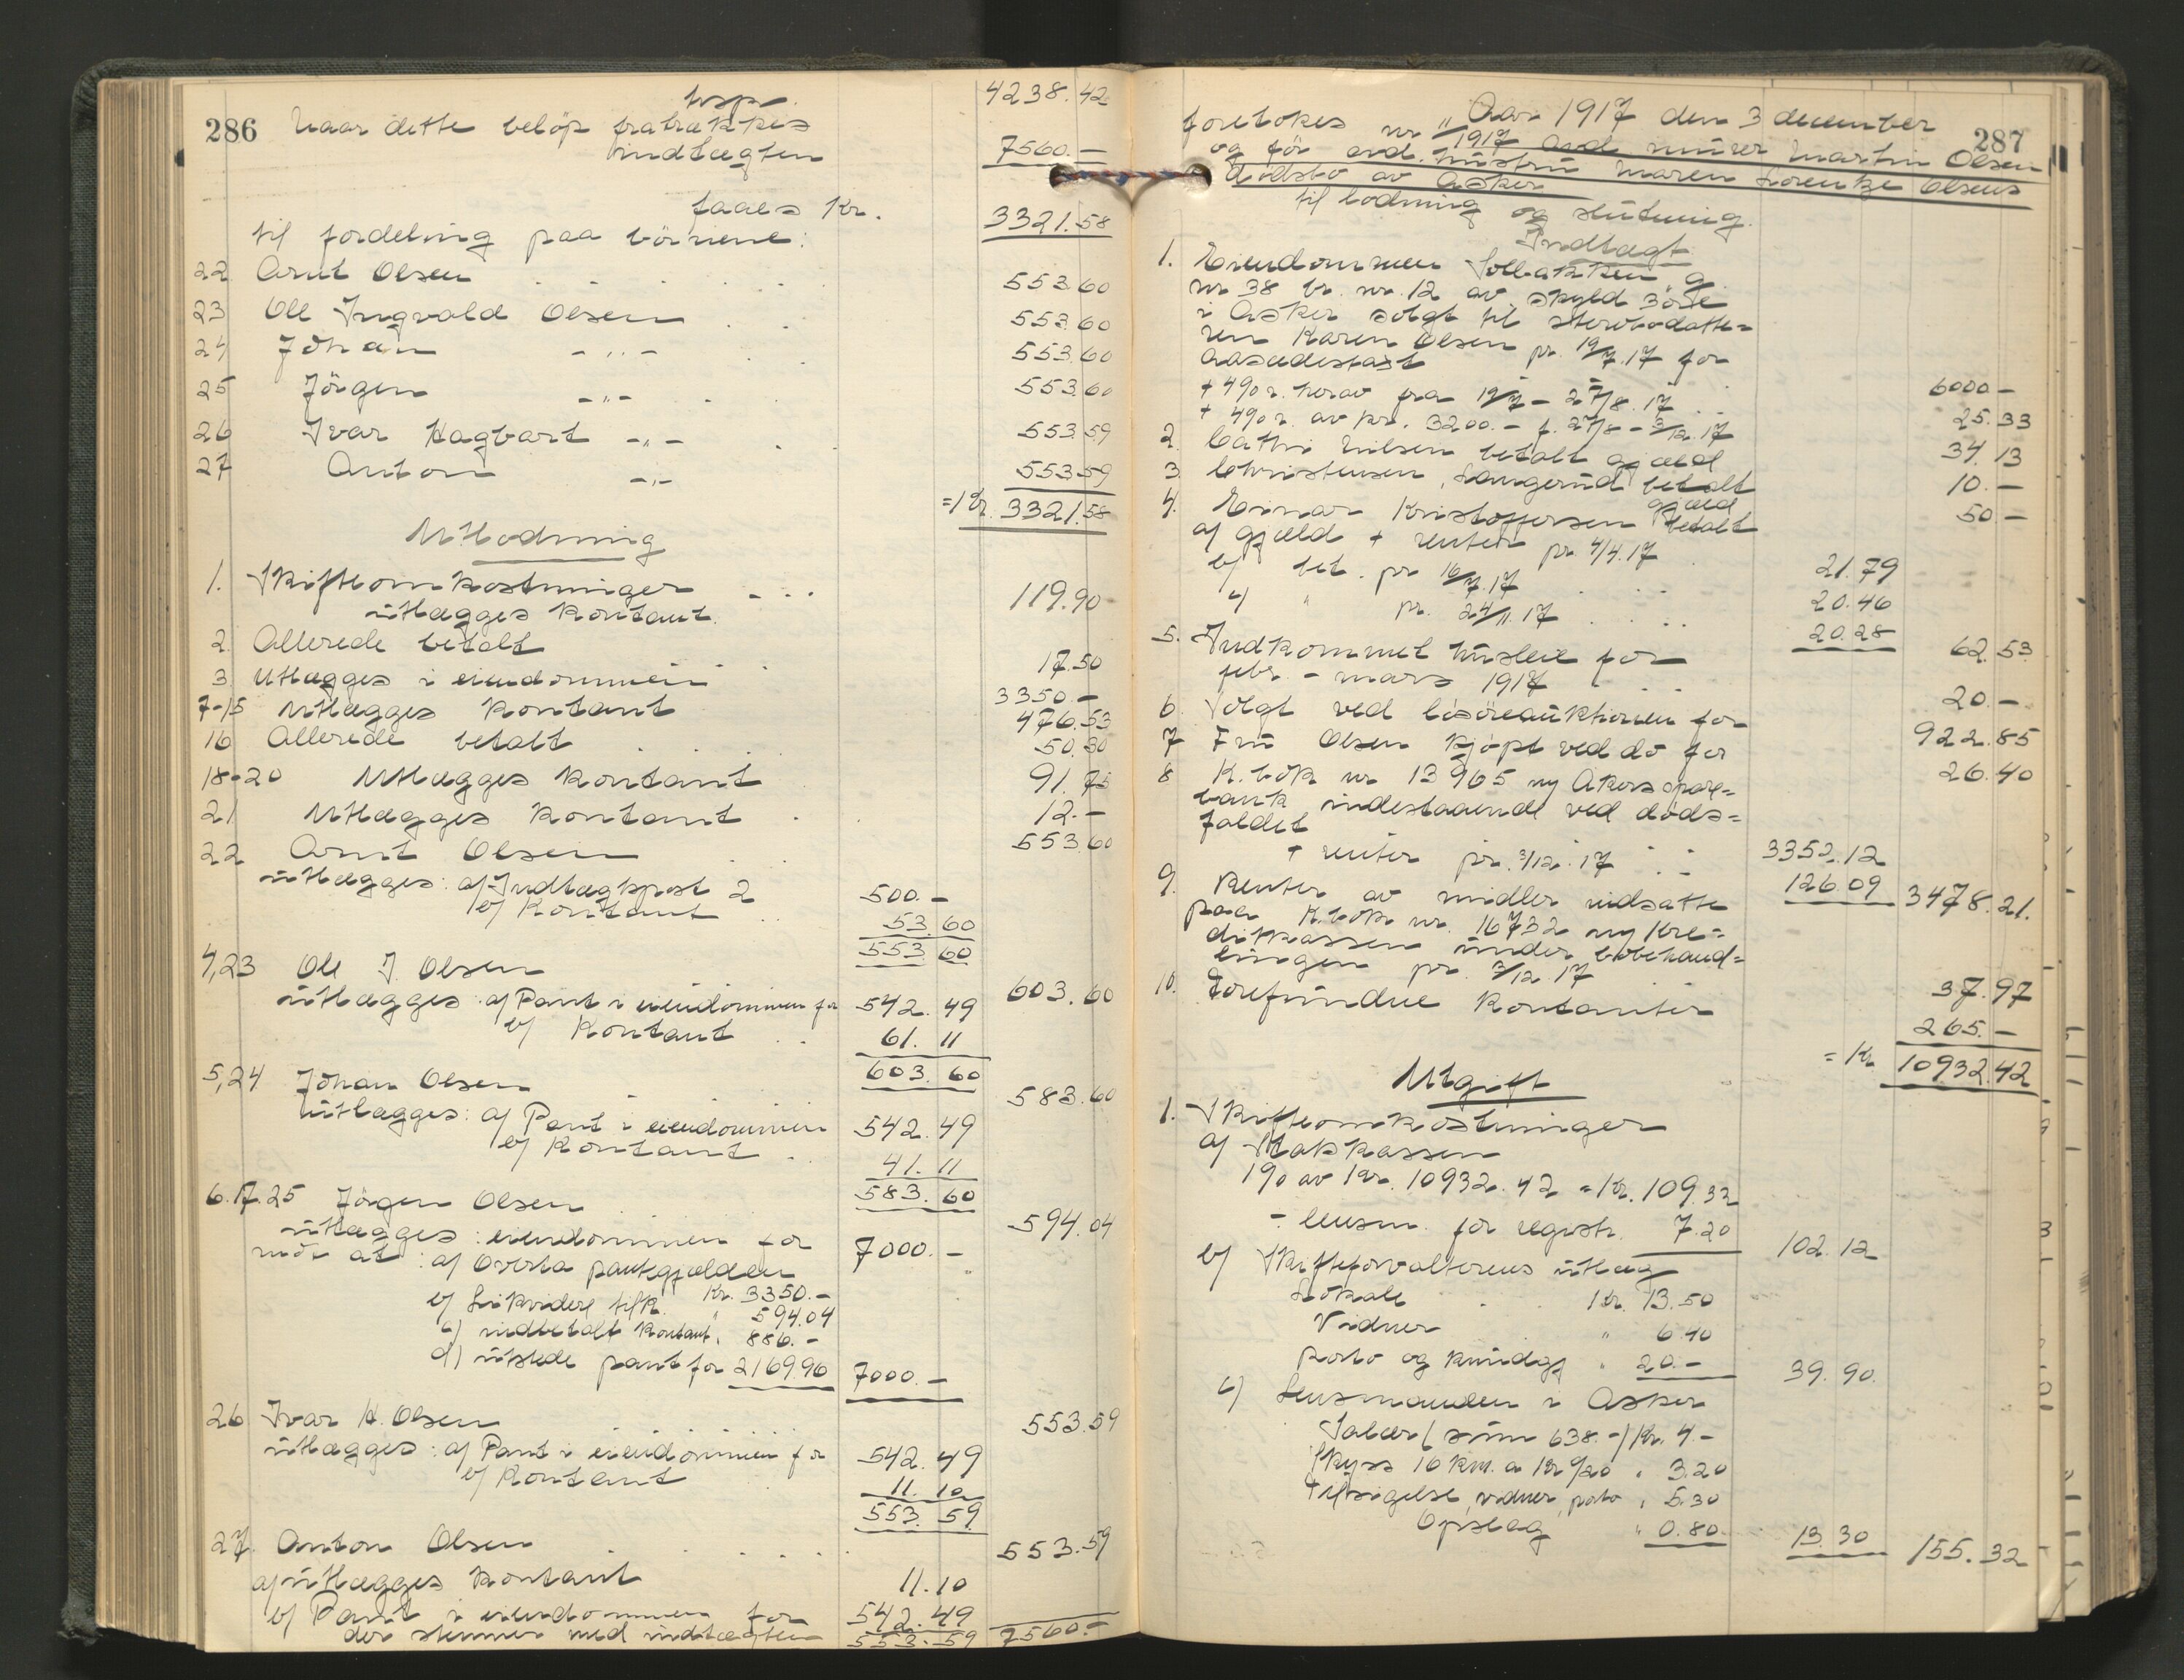 286
tvsp. 4238.42
Naar dette beløp fratrækkes
indtægten 7560.—
faaes Kr. 3321.58
til fordeling paa børnene:
22 Arnt Olsen . . . 553.60
23 Ole Ingvald Olsen . . 553.60
24 Johan —"— . 553.60
25 Jörgen —"— . 553.60
26 Ivar Hagbart —"— . 553.59
27 Anton —"— 553.59
= Kr. 3321.58
Utlodning
1. Skifteomkostninger - . . 119.90
utlægges kontant.
2 Allerede betalt 17.50
3 Utlægges i eiendommen 3350.—
7-15 Utlægges kontant 476.53
16 Allerede betalt . . . 50.30
18-20 Utlægges kontant 91.75
21 Utlægges kontant . 12.—
22 Arnt Olsen . . 553.60
utlægges: a/ Indtægtspost 2 500.—
b/ Kontant .. 53.60
553.60
4,23 Ole I. Olsen 603.60
utlægges: a/ Pant i eiendommen for 542.49
b/ Kontant .. 61.11
603.60
5,24 Johan Olsen 583.60
utlægges: a/ Pant i eiendommen 542.49
b/ Kontant . 41.11
583.60
6.17.25 Jörgen Olsen . 594.04
utlægges: eiendommen for 7000.—
mot at: a/ Overta pantegjælden
Kr. 3350.—
b/ Likvidere tilk. " 594.04
c/ indbetalt kontant " 886.—
d/ utstede pant for 2169.96 7000.—
26 Ivar H. Olsen 553.59
utlægges: a/ Pant i eiendommen for 542.49
b/ Kontant . 11.10
553.59
27. Anton Olsen . . . . . 553.59
a/ utlægges kontant 11.10
b/ Pant i eiendommen for 542.49
der stemmer med indtægten 553.59 7560.—
287
Aar 1917 den 3 december
foretokes nr "/1917 avd. murer Martin Olsen
og før avd. hustru Maren Lorentze Olsens
dødsbo av Asker
til lodning og slutning.
Indtægt
1. Eiendommen Solbakken g.
nr 38 br. nr. 12 av skyld 3 øre
i Asker solgt til stervbodatte=
ren Karen Olsen pr. 19/7.17 for
aasædestakst 6000—
+ 4% r. herav fra 19/7 - 27/8.17 . . 25.33
+ 4% r. av kr. 3200.— f. 27/8 - 3/12.17 34.13
2. Cathri Nilsen betalt gjæld 10.—
3. Christensen, Langerud betalt
gjæld 50—
4. Einar Kristoffersen betalt
a/ gjæld + renter pr 4/4.17 . 21.79
b/ bet. pr 16/7.17 . . . 20.46
c/ " pr. 24/11.17 . . . . 20.28 62.53
5. Indkommet husleie for
febr. - mars 1917 . . . 20.—
6. Solgt ved løsøreauktionen for 922.85
7 Fru Olsen kjøpt ved do for 26.40
8 K.bok nr 13965 ny Akers spare=
bank indestaaende ved døds=
faldet 3352.12
+ renter pr. 3/12.17 . . 126.09 3478.21.
9. Renter av midler indsatte
paa K.bok nr. 16732 ny Kre=
ditkassen under bobehand=
lingen pr. 3/12 17 37.97
10. Forefundne kontanter 265.—
= Kr 10932.42
Utgift
1. Skifteomkostninger
a/ Statskassen
1% av Kr. 10932.42 = Kr. 109.32
- lensm. for registr. 7.20 102.12
b/ Skifteforvalterens utlæg
Lokale . . Kr. 13.50
Vidner . " 6.40
porto og kundgj. " 20.— 39.90.
c/ Lensmanden i Asker
Salær (sum 638.-) Kr. 4.—
Skyss 16 km. a kr 0/20 " 3.20
tilsigelse, vidner, porto " 5.30
Opslag " 0.80. 13.30 155.32